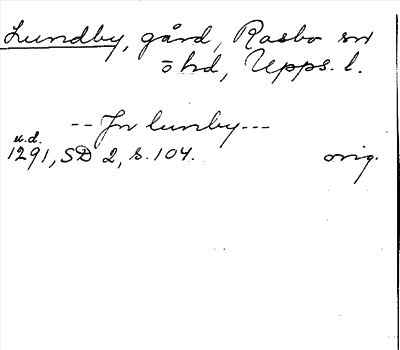 Lundby, gård, Rasbo sn
o hd, Upps. l.
-- Jn lunby---
u.d.
1291, SD 2, s. 104. orig.